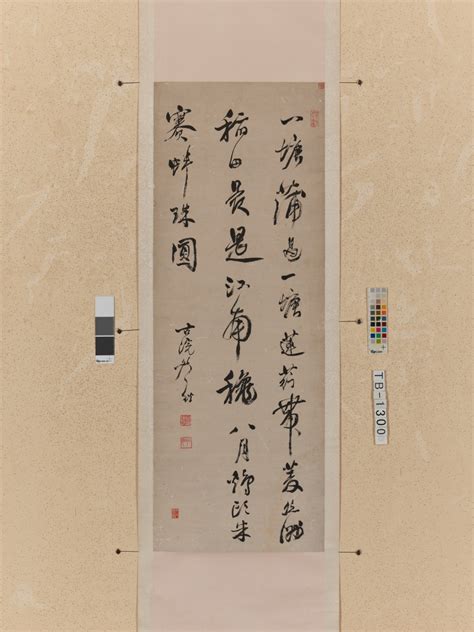 一塘蒲過一塘蓮荇帶菱絲滿
稻田最是江南穐八月鷄頭米
賽蚌珠圓
古浣
TB-1300